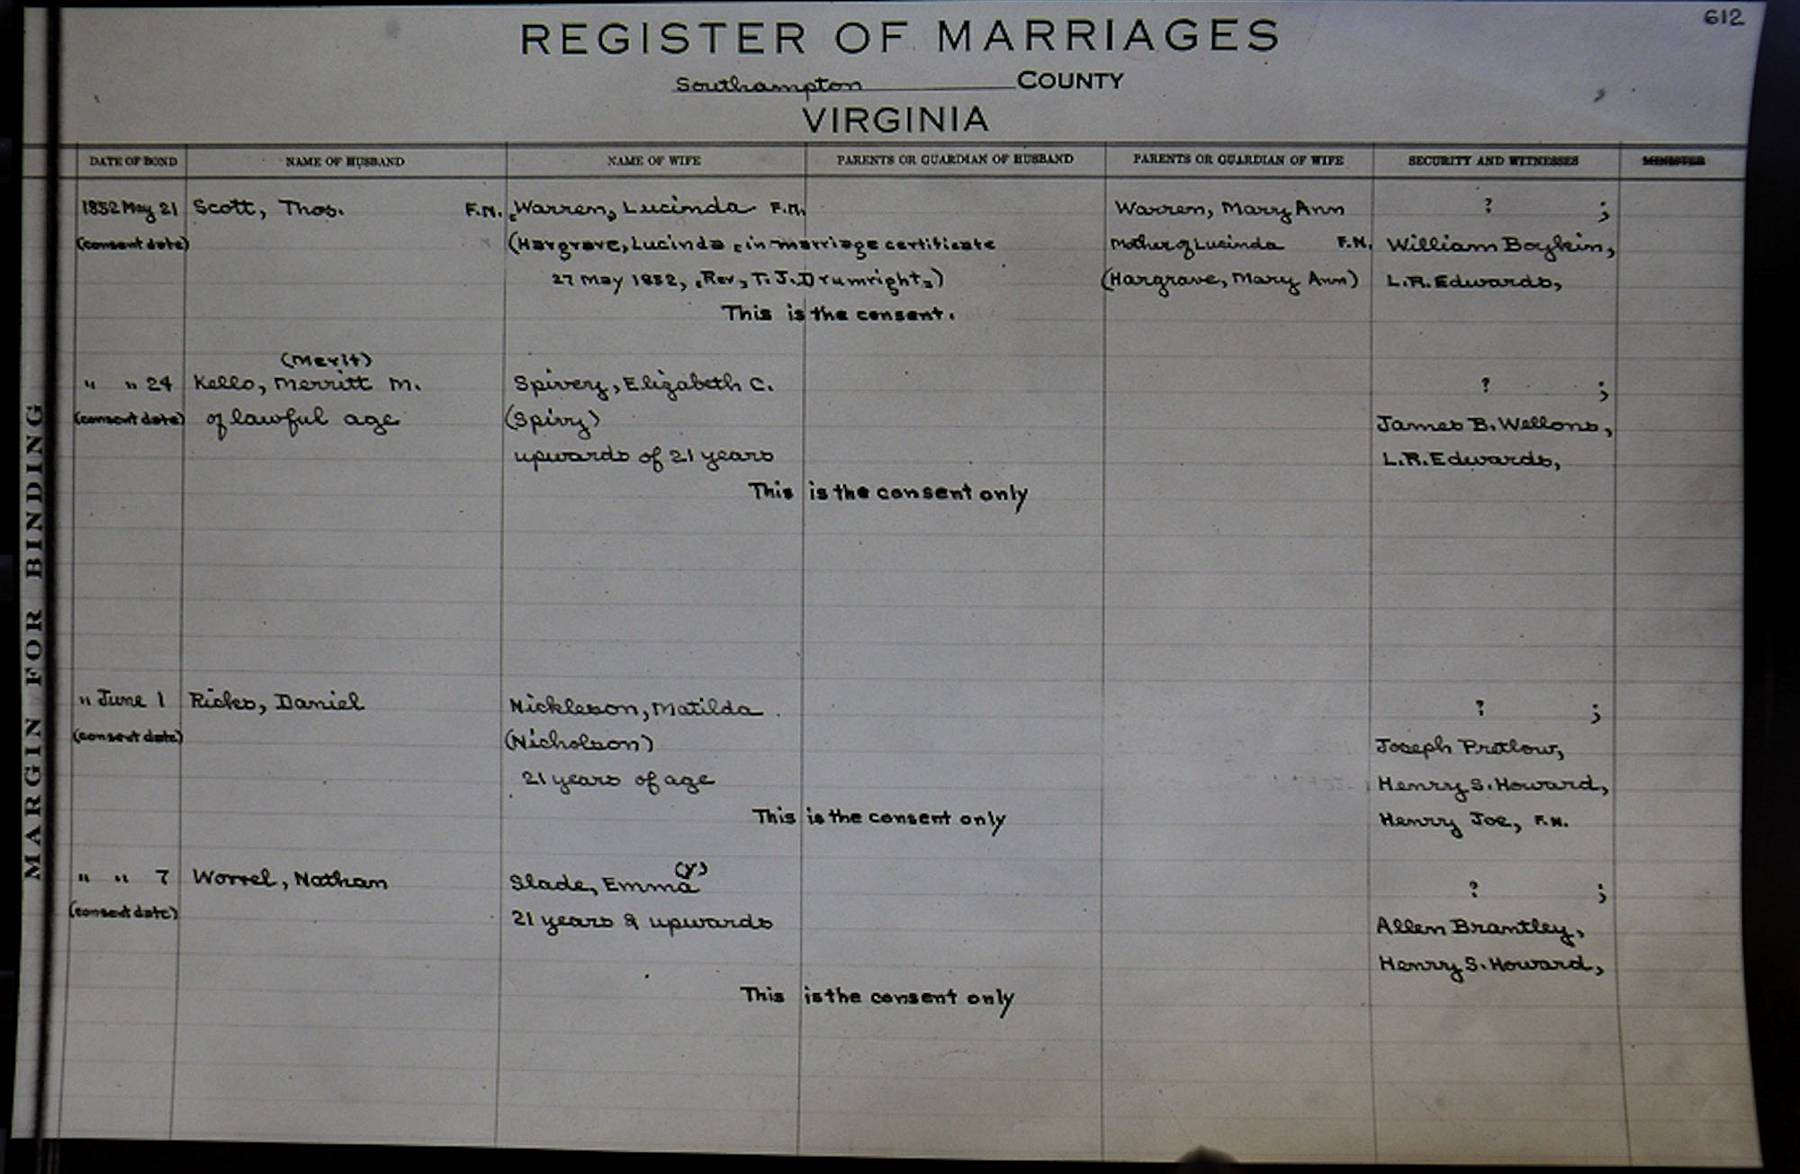 612
REGISTER OF MARRIAGES
Southampton COUNTY
VIRGINIA
DATE OF BOND NAME OF HUSBAND NAME OF WIFE PARENTS OR GUARDIAN OF HUSBAND PARENTS OR GUARDIAN OF WIFE SECURITY AND WITNESSES MINISTER
1852 May 21 Scott, Thos. F.N. Warren, Lucinda F.N. Warren, Mary Ann ? ;
(consent date) (Hargrave, Lucinda in marriage certificate Mother of Lucinda F.N. William Boykin,
27 May 1852, Rev, T. J. Drumright,) (Hargrave, Mary Ann) L.R. Edwards,
This is the consent.
(Merit)
" " 24 Kello, Merritt M. Spivery, Elizabeth C. ? ;
(consent date) of lawful age (Spivy) James B. Wellons,
upwards of 21 years L.R. Edwards,
This is the consent only
" June 1 Ricks, Daniel Nickleson, Matilda ? ;
(consent date) (Nicholson) Joseph Pretlow,
21 years of age Henry S. Howard,
This is the consent only Henry Joe, F.N.
(y)
" " 7 Worrel, Nathan Slade, Emma ? ;
(consent date) 21 years & upwards Allen Brantley,
Henry S. Howard,
This is the consent only
MARGIN FOR BINDING